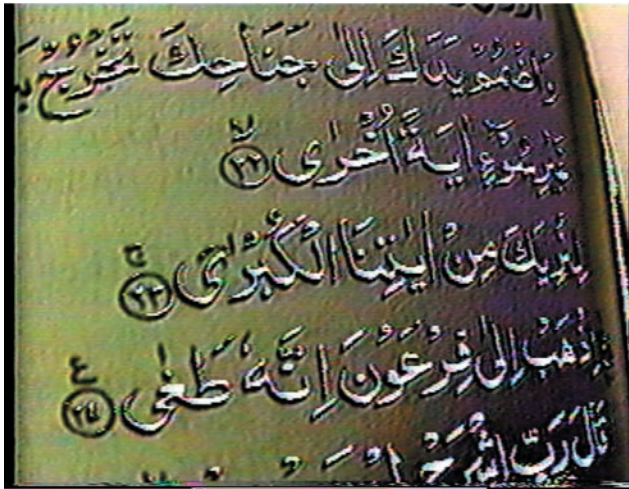 وَاضْمُمْ يَدَكَ اِلٰى جَنَاحِكَ تَخْرُجْ
غَيْرِ سُوْٓءٍ اٰيَةً اُخْرٰى ۙ ﴿۲۲﴾
لِنُرِيَكَ مِنْ اٰيٰتِنَا الْكُبْرٰى ۚ ﴿۲۳﴾
اِذْهَبْ اِلٰى فِرْعَوْنَ اِنَّهٗ طَغٰى ﴿۲۴﴾ ع
قَالَ رَبِّ اشْرَحْ